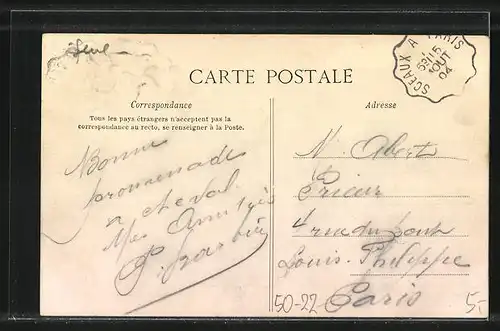 Seul
SCEAUX A PARIS
15
AOUT
04
CARTE POSTALE
Correspondance
Adresse
Tous les pays étrangers n'acceptent pas la
correspondance au recto, se renseigner à la Poste.
Bonne
promenade
a cheval.
Mes Amitiés
P.
M. Albert
Prieur
4 rue du Pont
Louis-Philippe
Paris
50-22
5,-